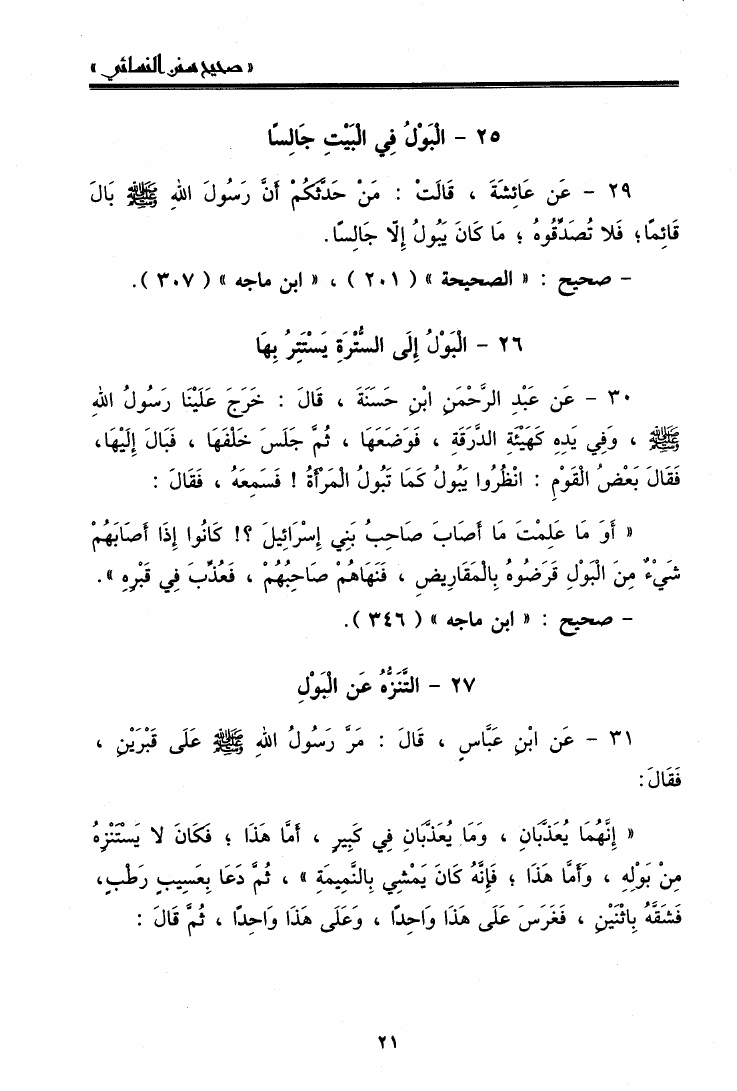 « صحيح سنن النسائي »
٢٥ - الْبَوْلُ فِي الْبَيْتِ جَالِسًا
٢٩ - عَن عَائِشَةَ ، قَالَتْ : مَنْ حَدَّثَكُمْ أَنَّ رَسُولَ اللهِ ﷺ بَالَ
قَائِمًا؛ فَلا تُصَدِّقُوهُ ؛ مَا كَانَ يَبُولُ إِلَّا جَالِسًا.
- صحيح : « الصحيحة » ( ٢٠١ ) ، « ابن ماجه » ( ٣٠٧ ).
٢٦ - الْبَوْلُ إِلَى السُّتْرَةِ يَسْتَتِرُ بِهَا
٣٠ - عَن عَبْدِ الرَّحْمَنِ ابْنِ حَسَنَةَ ، قَالَ : خَرَجَ عَلَيْنَا رَسُولُ اللهِ
ﷺ ، وَفِي يَدِهِ كَهَيْئَةِ الدَّرَقَةِ ، فَوَضَعَهَا ، ثُمَّ جَلَسَ خَلْفَهَا ، فَبَالَ إِلَيْهَا،
فَقَالَ بَعْضُ الْقَوْمِ : انْظُرُوا يَبُولُ كَمَا تَبُولُ الْمَرْأَةُ ! فَسَمِعَهُ ، فَقَالَ :
« أَوَ مَا عَلِمْتَ مَا أَصَابَ صَاحِبُ بَنِي إِسْرَائِيلَ ؟! كَانُوا إِذَا أَصَابَهُمْ
شَيْءٌ مِنَ الْبَوْلِ قَرَضُوهُ بِالْمَقَارِيضِ ، فَنَهَاهُمْ صَاحِبُهُمْ ، فَعُذِّبَ فِي قَبْرِهِ ».
- صحيح : « ابن ماجه » ( ٣٤٦ ).
٢٧ - التَّنَزُّهُ عَن الْبَوْلِ
٣١ - عَن ابْنِ عَبَّاسٍ ، قَالَ : مَرَّ رَسُولُ اللهِ ﷺ عَلَى قَبْرَيْنِ ،
فَقَالَ:
« إِنَّهُمَا يُعَذَّبَانِ ، وَمَا يُعَذَّبَانِ فِي كَبِيرٍ ، أَمَّا هَذَا ؛ فَكَانَ لا يَسْتَنْزِهُ
مِنْ بَوْلِهِ ، وَأَمَّا هَذَا ؛ فَإِنَّهُ كَانَ يَمْشِي بِالنَّمِيمَةِ » ، ثُمَّ دَعَا بِعَسِيبٍ رَطْبٍ،
فَشَقَّهُ بِاثْنَيْنِ ، فَغَرَسَ عَلَى هَذَا وَاحِدًا ، وَعَلَى هَذَا وَاحِدًا ، ثُمَّ قَالَ :
٢١